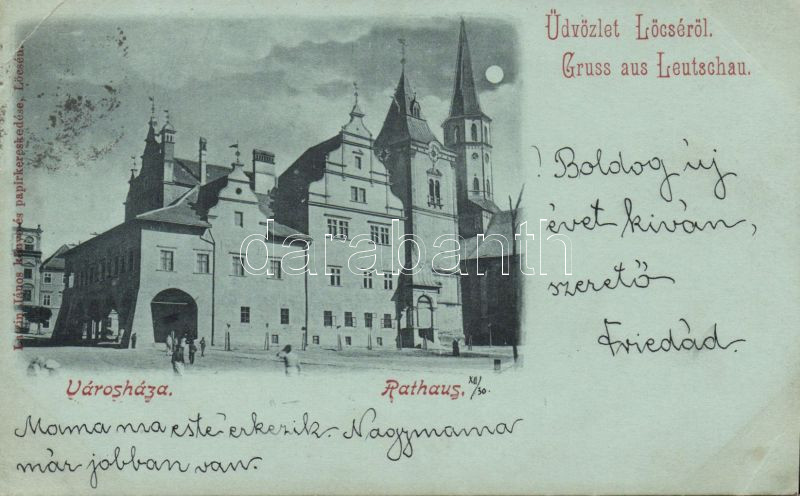 Üdvözlet Löcséről.
Gruss aus Leutschau.
! Boldog új
évet kíván,
szerető
Friedád.
Városháza.
Rathaus.
XII/30.
Mama ma este érkezik. Nagymama
már jobban van.
János könyv és papirkereskedése, Löcsén.
darabanth.com